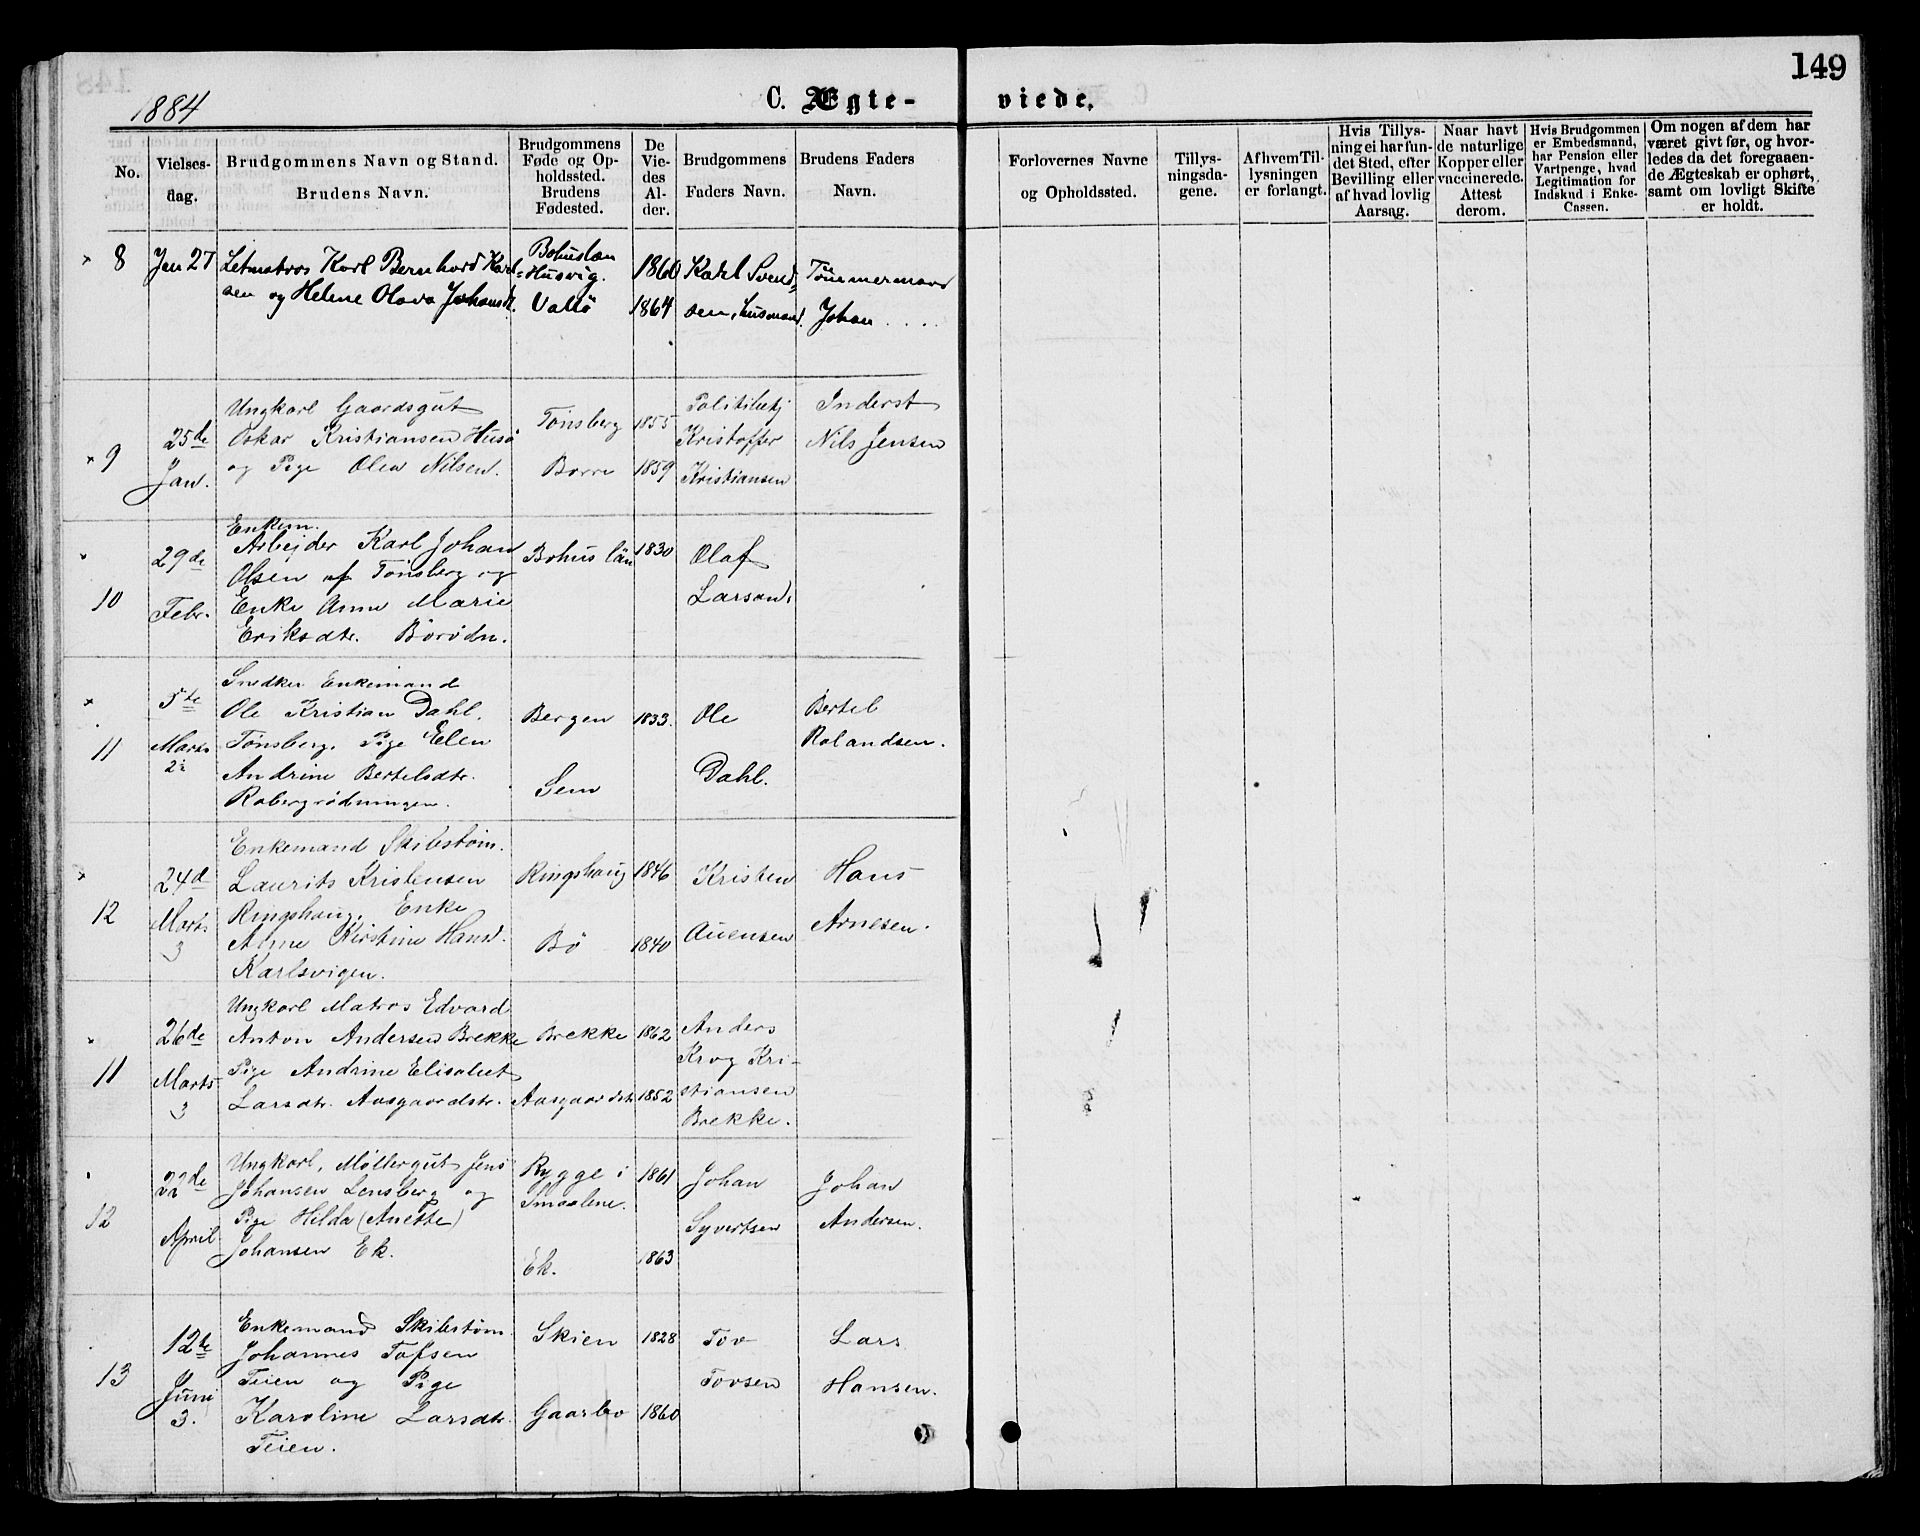 149
1884
C. Ægte-
viede,
No.
Vielses-
dag.
Brudgommens Navn og Stand.
Brudens Navn.
Brudgommens
Føde og Op-
holdssted.
Brudens
Fødested.
De
Vie-
des
Al-
der.
Brudgommens
Faders Navn.
Brudens Faders
Navn.
Forlovernes Navne
og Opholdssted.
Tillys-
ningsda-
gene.
Af hvem Til-
lysningen
er forlangt.
Hvis Tillys-
ning ei har fun-
det Sted, efter
Bevilling eller
af hvad lovlig
Aarsag.
Naar havt
de naturlige
Kopper eller
vaccinerede.
Attest
derom.
Hvis Brudgommen
er Embedsmand,
har Pension eller
Vartpenge, hvad
Legitimation for
Indskud i Enke-
Cassen.
Om nogen af dem har
været givt før, og hvor-
ledes da det foregaaen-
de Ægteskab er ophørt,
samt om lovligt Skifte
er holdt.
8
Jan 27
Letmatros Karl Bernhard Karl-
sen og Helene Olava Johansd.
Bohuslän
Husvig.
Valø
1860
1864
Karl Svend-
sen, husmand.
Tømmermand
Johan ....
9
25de
Jan.
Ungkarl Gaardsgut
Oskar Kristiansen Husø
og Pige Olea Nilsen.
Tönsberg
Borre
1855
1859
Politibetj
Kristoffer
Kristiansen
Inderst
Nils Jensen
10
29de
Febr.
Enkem.
Arbejder Karl Johan
Olsen af Tönsberg og
Enke Anne Marie
Eriksdtr.
Bohus län
1830
Olaf
Larson.
11
5te
Marts
2
Snedker Enkemand
Ole Kristian Dahl.
Tönsberg. Pige Elen
Andrine Bertelsdtr.
Rabergrödningen.
Bergen
Sem
1833.
Ole
Dahl.
Bertel
Rolandsen.
12
24d
Marts
3
Enkemand Skibstöm.
Laurits Kristensen
Ringshaug. Enke
Anne Kirstine Hansd.
Karlsvigen.
Ringshaug
Bö
1846
1840
Kristen
Auensen
Hans
Arnesen.
11
26de
Marts
3
Ungkarl Matros Edvard
Anton Andersen Brekke
Pige Andrine Elisabet
Larsdtr. Aasgaardstr.
Brekke
Aasgaardstr
1862
1852
Anders
Krog Kri-
stiansen
Brekke.
12
22de
April
Ungkarl, Møllergut Jens
Johansen Lensberg og
Pige Hilda (Anette)
Johansen Ek.
Rygge i
Smaalene.
Ek.
1861
1863
Johan
Syvertsen
Johan
Andersen.
13
12te
Juni
3.
Enkemand Skibstöm
Johannes Tofsen
Teien og Pige
Karoline Larsdtr.
Teien.
Skien
Gaarbo
1828
1860
Tov
Tovsen
Lars
Hansen.